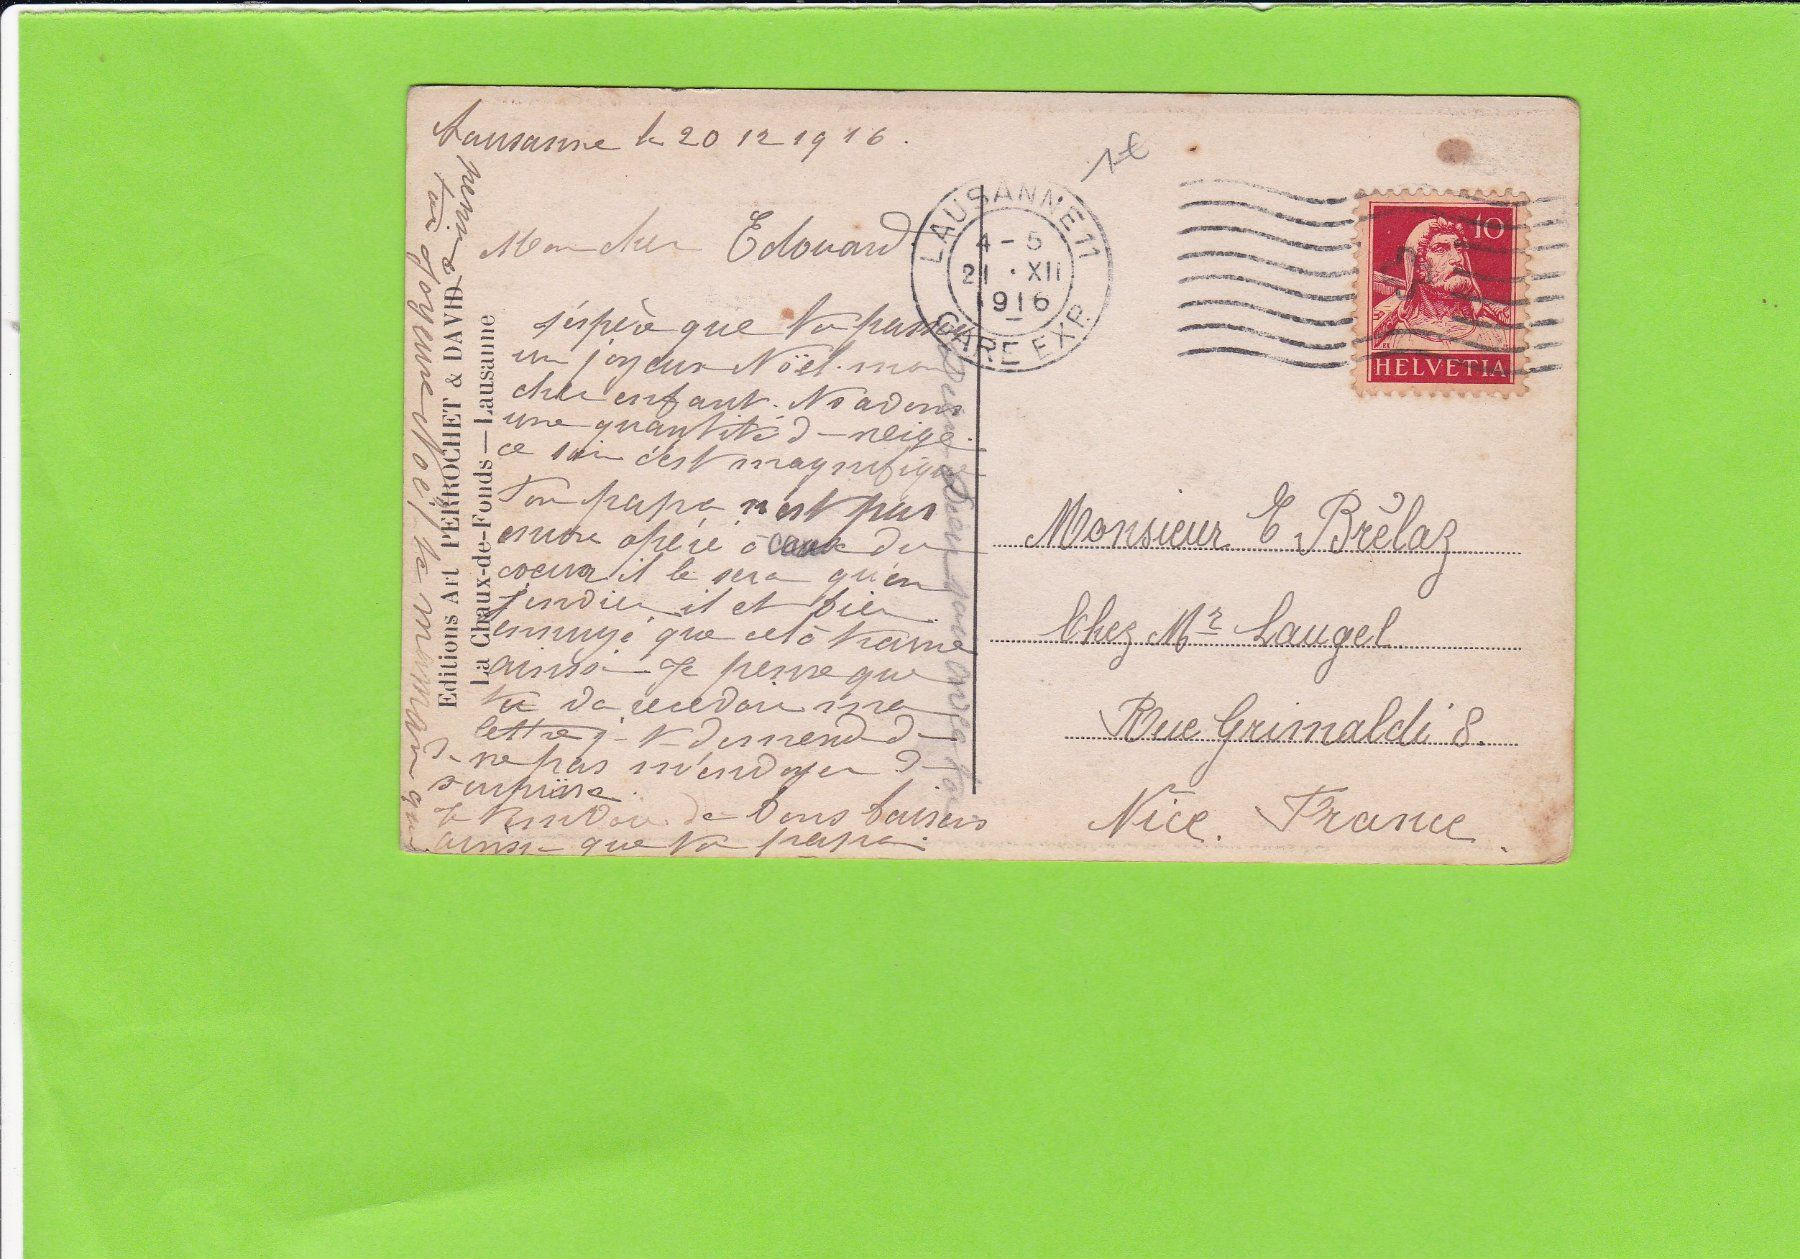 Lausanne le 20 12 1916.
Mon cher Edouard
j'éspère que tu passe
un joyeux Noël. mon
cher enfant. Ns avons
une quantité d - neige
ce soir c'est magnifique
Ton papa n'est pas
encore opéré à cause du
coeur il le sera qu'en
Jendier il et bien
ennuyé que cela traine
ainsi Je pense que
tu va recevoir ma
lettre j- t- demend d-
d- ne pas m'envoyer d-
surprise.
Je t'envoie de bons baisers
ainsi que ton papa.
joyeuse Noël ta maman qui
pense a toi
Editions Art PERROCHET & DAVID
La Chaux-de-Fonds — Lausanne
1€
LAUSANNE 11
4 - 5
21 · XII
1916
GARE EXP.
10
HELVETIA
Monsieur E. Brélaz
Chez Mr Laugel
Rue Grimaldi 8.
Nice. France.